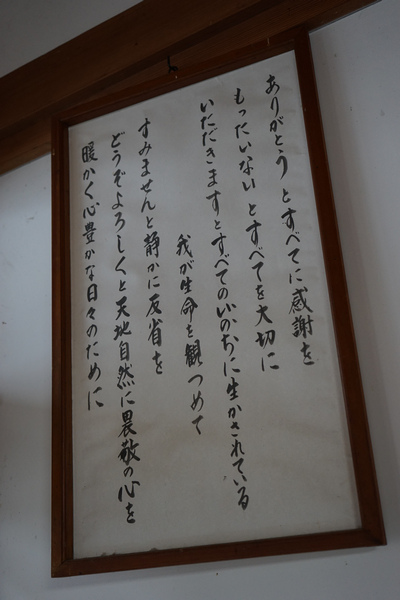 ありがとう とすべてに感謝を
もったいない とすべてを大切に
いただきますとすべてのいのちに生かされている
我が生命を観つめて
すみませんと静かに反省を
どうぞよろしくと天地自然に畏敬の心を
暖かく心豊かな日々のために